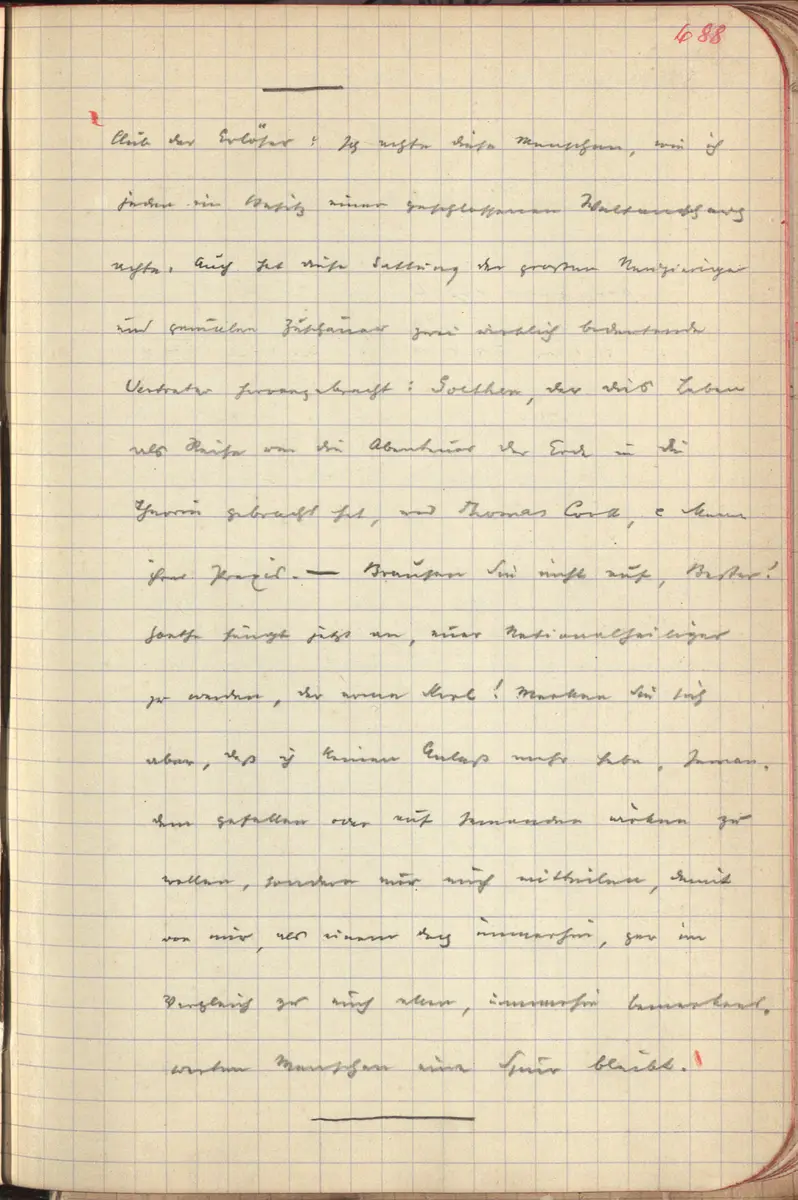 488
Club der Erlöser: Ich achte diese Menschen, wie ich
jeden im Besitz einer geschlossenen Weltanschauung
achte. Auch hat diese Gattung der grossen Neugierigen
und genialen Zuschauer zwei wirklich bedeutende
Vertreter hervorgebracht: Goethen, der das Leben
als Reise von die Abenteuer der Erde in die
Theorie gebracht hat, und Thomas Cook, e Mann
ihrer Praxis. — Brausen Sie nicht auf, Bester!
Goethe fängt jetzt an, euer Nationalheiliger
zu werden, der arme Kerl! Merken Sie sich
aber, daß ich keinen Anlaß mehr habe, Jeman-
dem gefallen oder auf Jemanden wirken zu
wollen, sondern nur mich mitteilen, damit
von mir, als einem doch immerhin, gar im
Vergleich zu euch allen, immerhin bemerkens-
werten Menschen eine Spur bleibt.